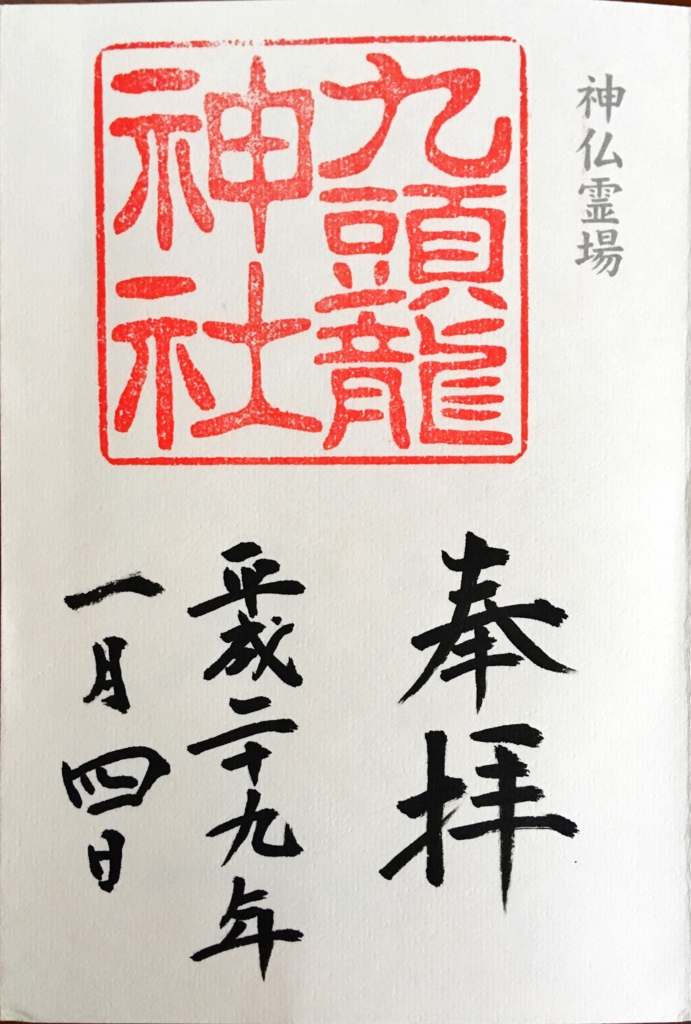 神仏霊場
九頭龍
神社
奉拝
平成二十九年
一月四日